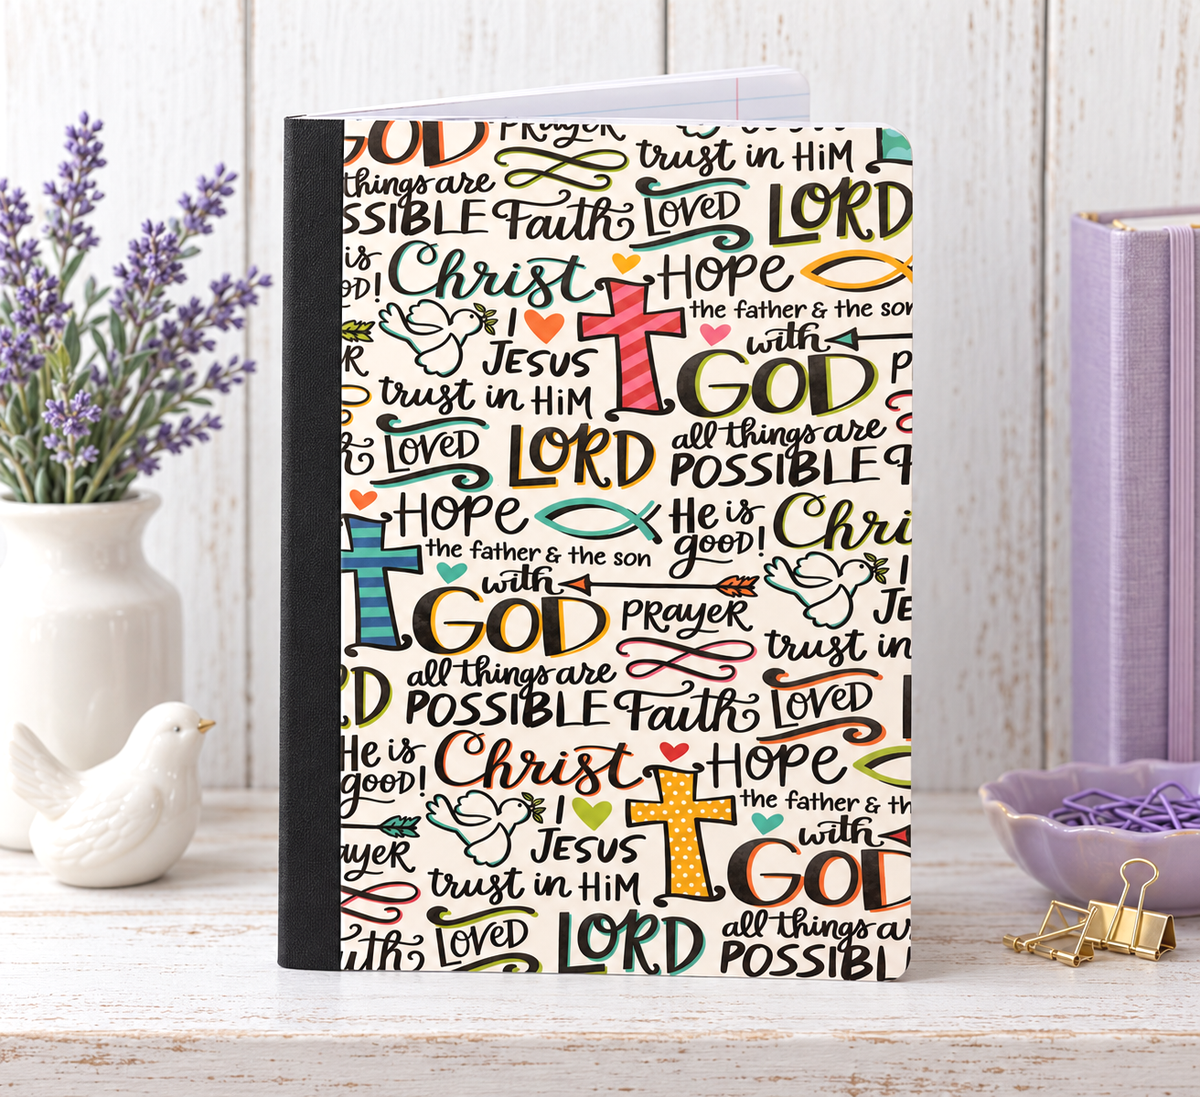 GOD PRAYER
trust in HiM
things are
SSIBLE Faith LOVED LORD
is
OD! Christ HOPE
the father & the son
I
JESUS with
R GOD P
trust in HiM
LOVED LORD all things are
POSSIBLE F
HOPE He is
good! Chri
the father & the son
with I
GOD PRayeR JE
trust in
all things are
RD POSSIBLE Faith LOVED
He is
good! Christ HOPE
the father & th
I
JESUS with
ayeR GOD
trust in HiM
aith LOVED LORD all things ar
POSSIBL